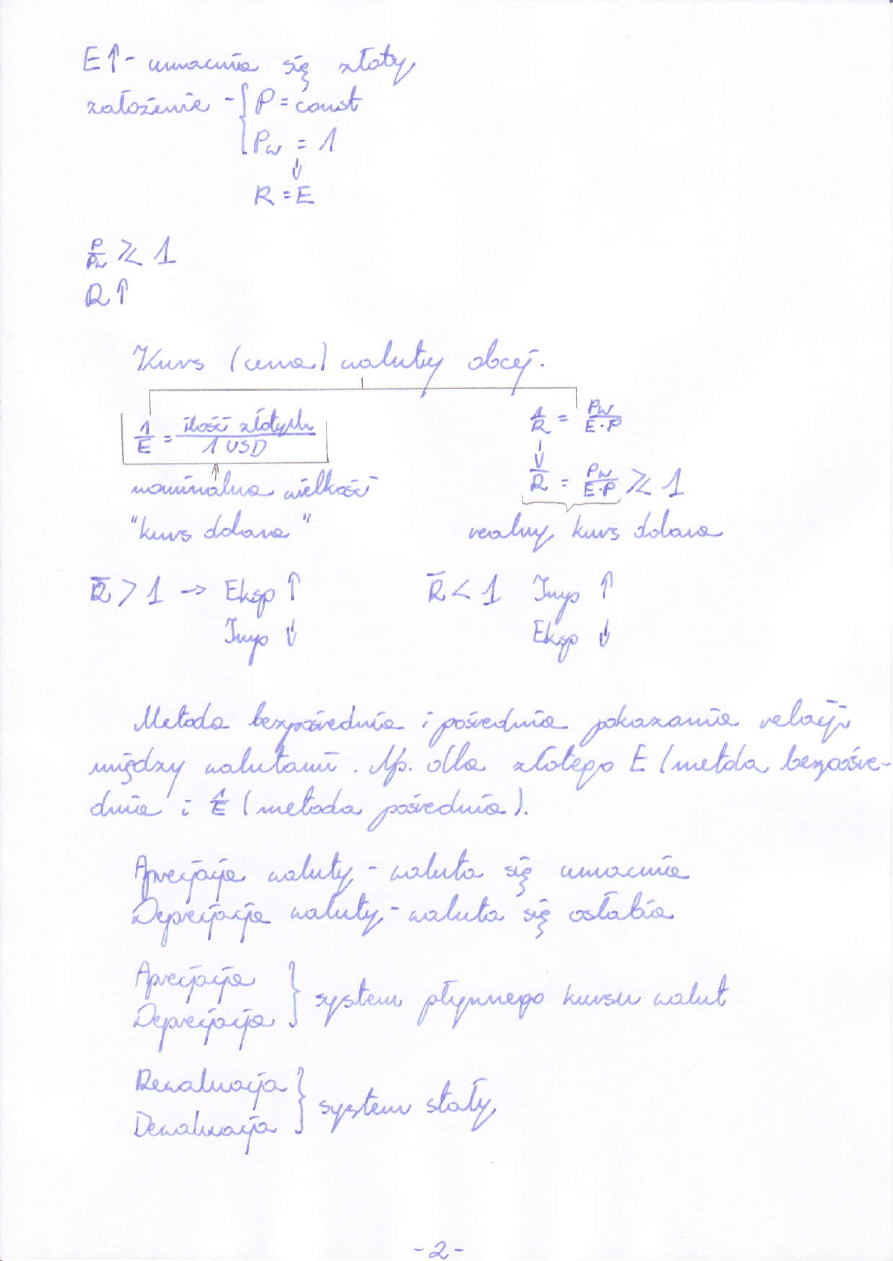 E↑ - umacnia się złoty
założenie - { P = const
Pw = 1
⇓
R = E
P/Pw ≷ 1
R↑
Kurs (cena) waluty obcej.
1/E = ilość złotych / 1 USD
1/R = Pw / E·P
⇓
R̄ = Pw / E·P ≷ 1
nominalna wielkość
"kurs dolara"
realny kurs dolara
R̄ > 1 → Eksp ↑
Imp ↓
R̄ < 1 Imp ↑
Eksp ↓
Metoda bezpośrednia i pośrednia pokazania relacji
między walutami. Np. dla złotego E (metoda bezpośre-
dnia i 1/E (metoda pośrednia).
Aprecjacja waluty - waluta się umacnia
Deprecjacja waluty - waluta się osłabia
Aprecjacja
Deprecjacja } system płynnego kursu walut
Rewaluacja
Dewaluacja } system stały
- 2 -